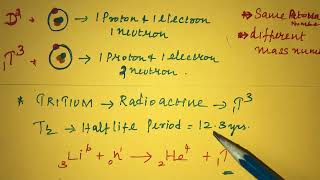 D³ → 1 Proton & 1 electron
1 neutron
₁T³ → 1 Proton & 1 electron
2 neutron
→ Same
→ different
mass num
* TRITIUM → Radioactive → ₁T³
T½ → Half life Period = 12.3 yrs.
₃Li⁶ + ₀n¹ → ₂He⁴ + ₁T